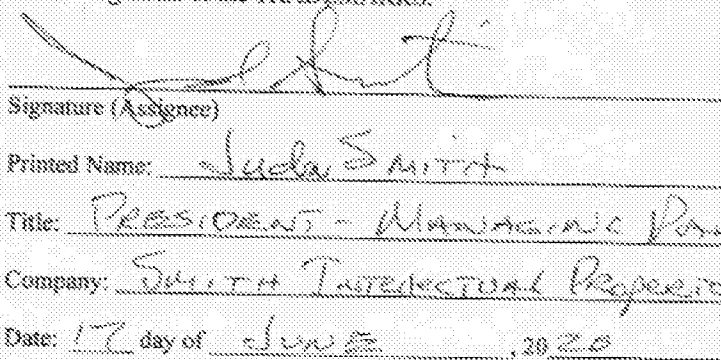 Signature (Assignee)
Printed Name: Juda Smith
Title: PRESIDENT - MANAGING
Company: SMITH INTELLECTUAL
Date: 17 day of JUNE, 2020